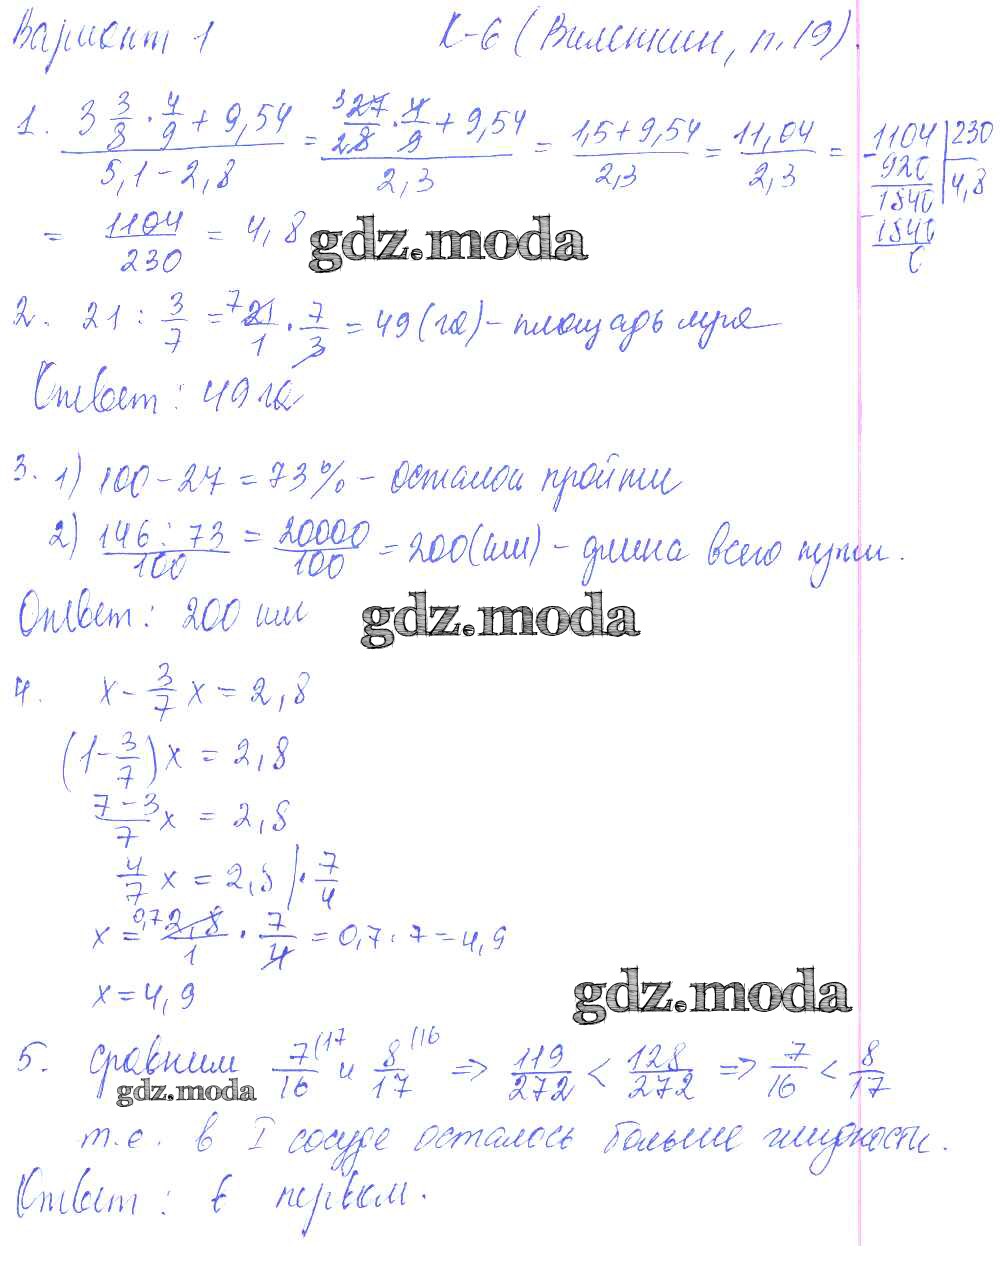 Вариант 1 К-6 (Виленкин, п.19).
1. (3 3/8 · 4/9 + 9,54)/(5,1 - 2,8) = (27/28 · 4/9 + 9,54)/2,3 = (1,5 + 9,54)/2,3 = 11,04/2,3 =
3
1104 | 230
- 920 4,8
1840
- 1840
0
= 1104/230 = 4,8
gdz.moda
2. 21 : 3/7 = 7 21/1 · 7/3 = 49 (га) - площадь луга
Ответ: 49 га
3. 1) 100 - 27 = 73% - осталось пройти
2) 146 : 73/100 = 20000/100 = 200 (км) - длина всего пути.
Ответ: 200 км
gdz.moda
4. x - 3/7 x = 2,8
(1 - 3/7) x = 2,8
(7 - 3)/7 x = 2,8
4/7 x = 2,8 | · 7/4
x = 0,7 2,8/1 · 7/4 = 0,7 · 7 = 4,9
x = 4,9
gdz.moda
5. Сравним 7/16 (17 и 8/17 (16 => 119/272 < 128/272 => 7/16 < 8/17
gdz.moda
т.е. в I сосуде осталось больше жидкости.
Ответ: в первом.